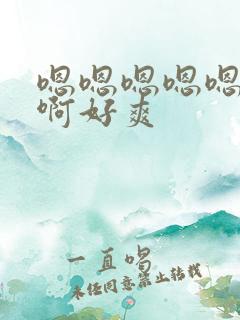 嗯嗯嗯嗯嗯
啊好爽
一直唱
未经同意禁止转载